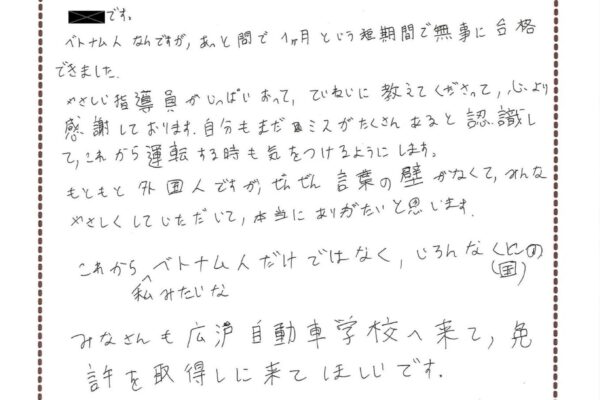 です。
ベトナム人なんですが、あっと間で1ヶ月という短期間で無事に合格
できました。
やさしい指導員がいっぱいおって、ていねいに教えてくださって、心より
感謝しております。自分もまだミスがたくさんあると認識し
て、これから運転する時も気をつけるようにします。
もともと外国人ですが、ぜんぜん言葉の壁がなくて、みんな
やさしくしていただいて、本当にありがたいと思います。
これからベトナム人だけではなく、いろんなくにの
私みたいな (国)
みなさんも広沪自動車学校へ来て、免
許を取得しに来てほしいです。